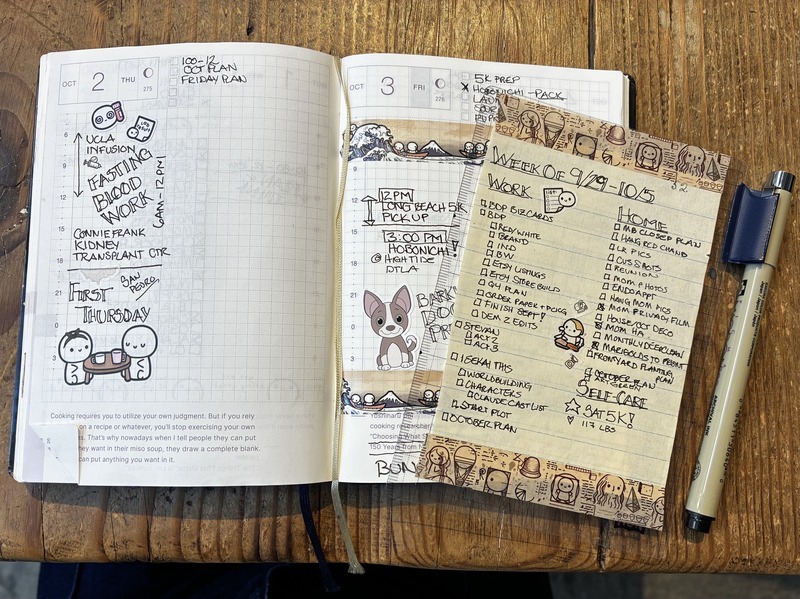 OCT
2
THU
275
100-12
OCT PLAN
FRIDAY PLAN
6
9
12
15
18
21
0
3
UCLA
INFUSION
FASTING
BLOOD
WORK
6AM-12PM
CONNIE FRANK
KIDNEY
TRANSPLANT CTR
FIRST
THURSDAY
SAN
PEDRO
Cooking requires you to utilize your own judgment. But if you rely
on a recipe or whatever, you'll stop exercising your own
That's why nowadays when I tell people they can put
they want in their miso soup, they draw a complete blank.
can put anything you want in it.
OCT
3
FRI
276
5K PREP
HOBONICHI-PACK
12PM
LONG BEACH 5K
PICK UP
3:00 PM
HOBONICHI!
@ HIGHTIDE
DTLA
cooking researcher
"Choosing What S
150 Years from
WEEK OF 9/29-10/5
WORK
BDP BIZCARDS
BDP
RED/WHITE
BRAND
IND
BW
ETSY LISTINGS
ETSY STORE BUILD
Q4 PLAN
ORDER PAPER + PCKG
FINISH SEPT!
DEM 2 EDITS
STEVAN
ACT 2
ACT 3
ISEKAI THIS
WORLDBUILDING
CHARACTERS
CLAUDE CAST LIST
START PLOT
OCTOBER PLAN
HOME
MB CLOSED PLAN
HANG RCD CHAND
LR PICS
REUNION
MOM PHOTOS
ENDO APPT
HANG MOM PICS
MOM PRIVACY FILM
HOUSE OCT DECO
MOM HA
MONTHLY DEEPCLEAN
MARIGOLDS TO FRONT
FRONTYARD PLANTING
PLAN
OCTOBER PLAN
SELF-CARE
SAT 5K!
117 LBS